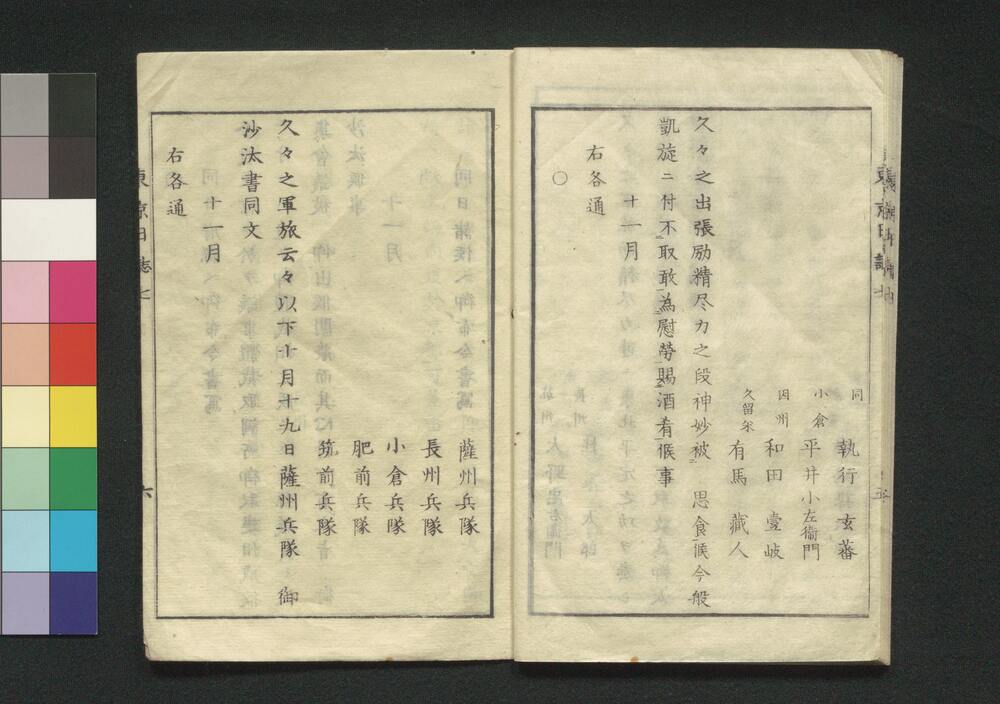 同　執行玄蕃
小倉　平井小左衞門
因州　和田壹岐
久留米　有馬藏人
久々之出張励精尽力之段神妙被　思食候今般
凱旋ニ付不取敢為慰勞賜酒肴候事
十一月
右各通
○
薩州兵隊
長州兵隊
小倉兵隊
肥前兵隊
筑前兵隊
久々之軍旅云々以下十月十九日薩州兵隊　御
沙汰書同文
十一月
右各通
東京日誌七
六